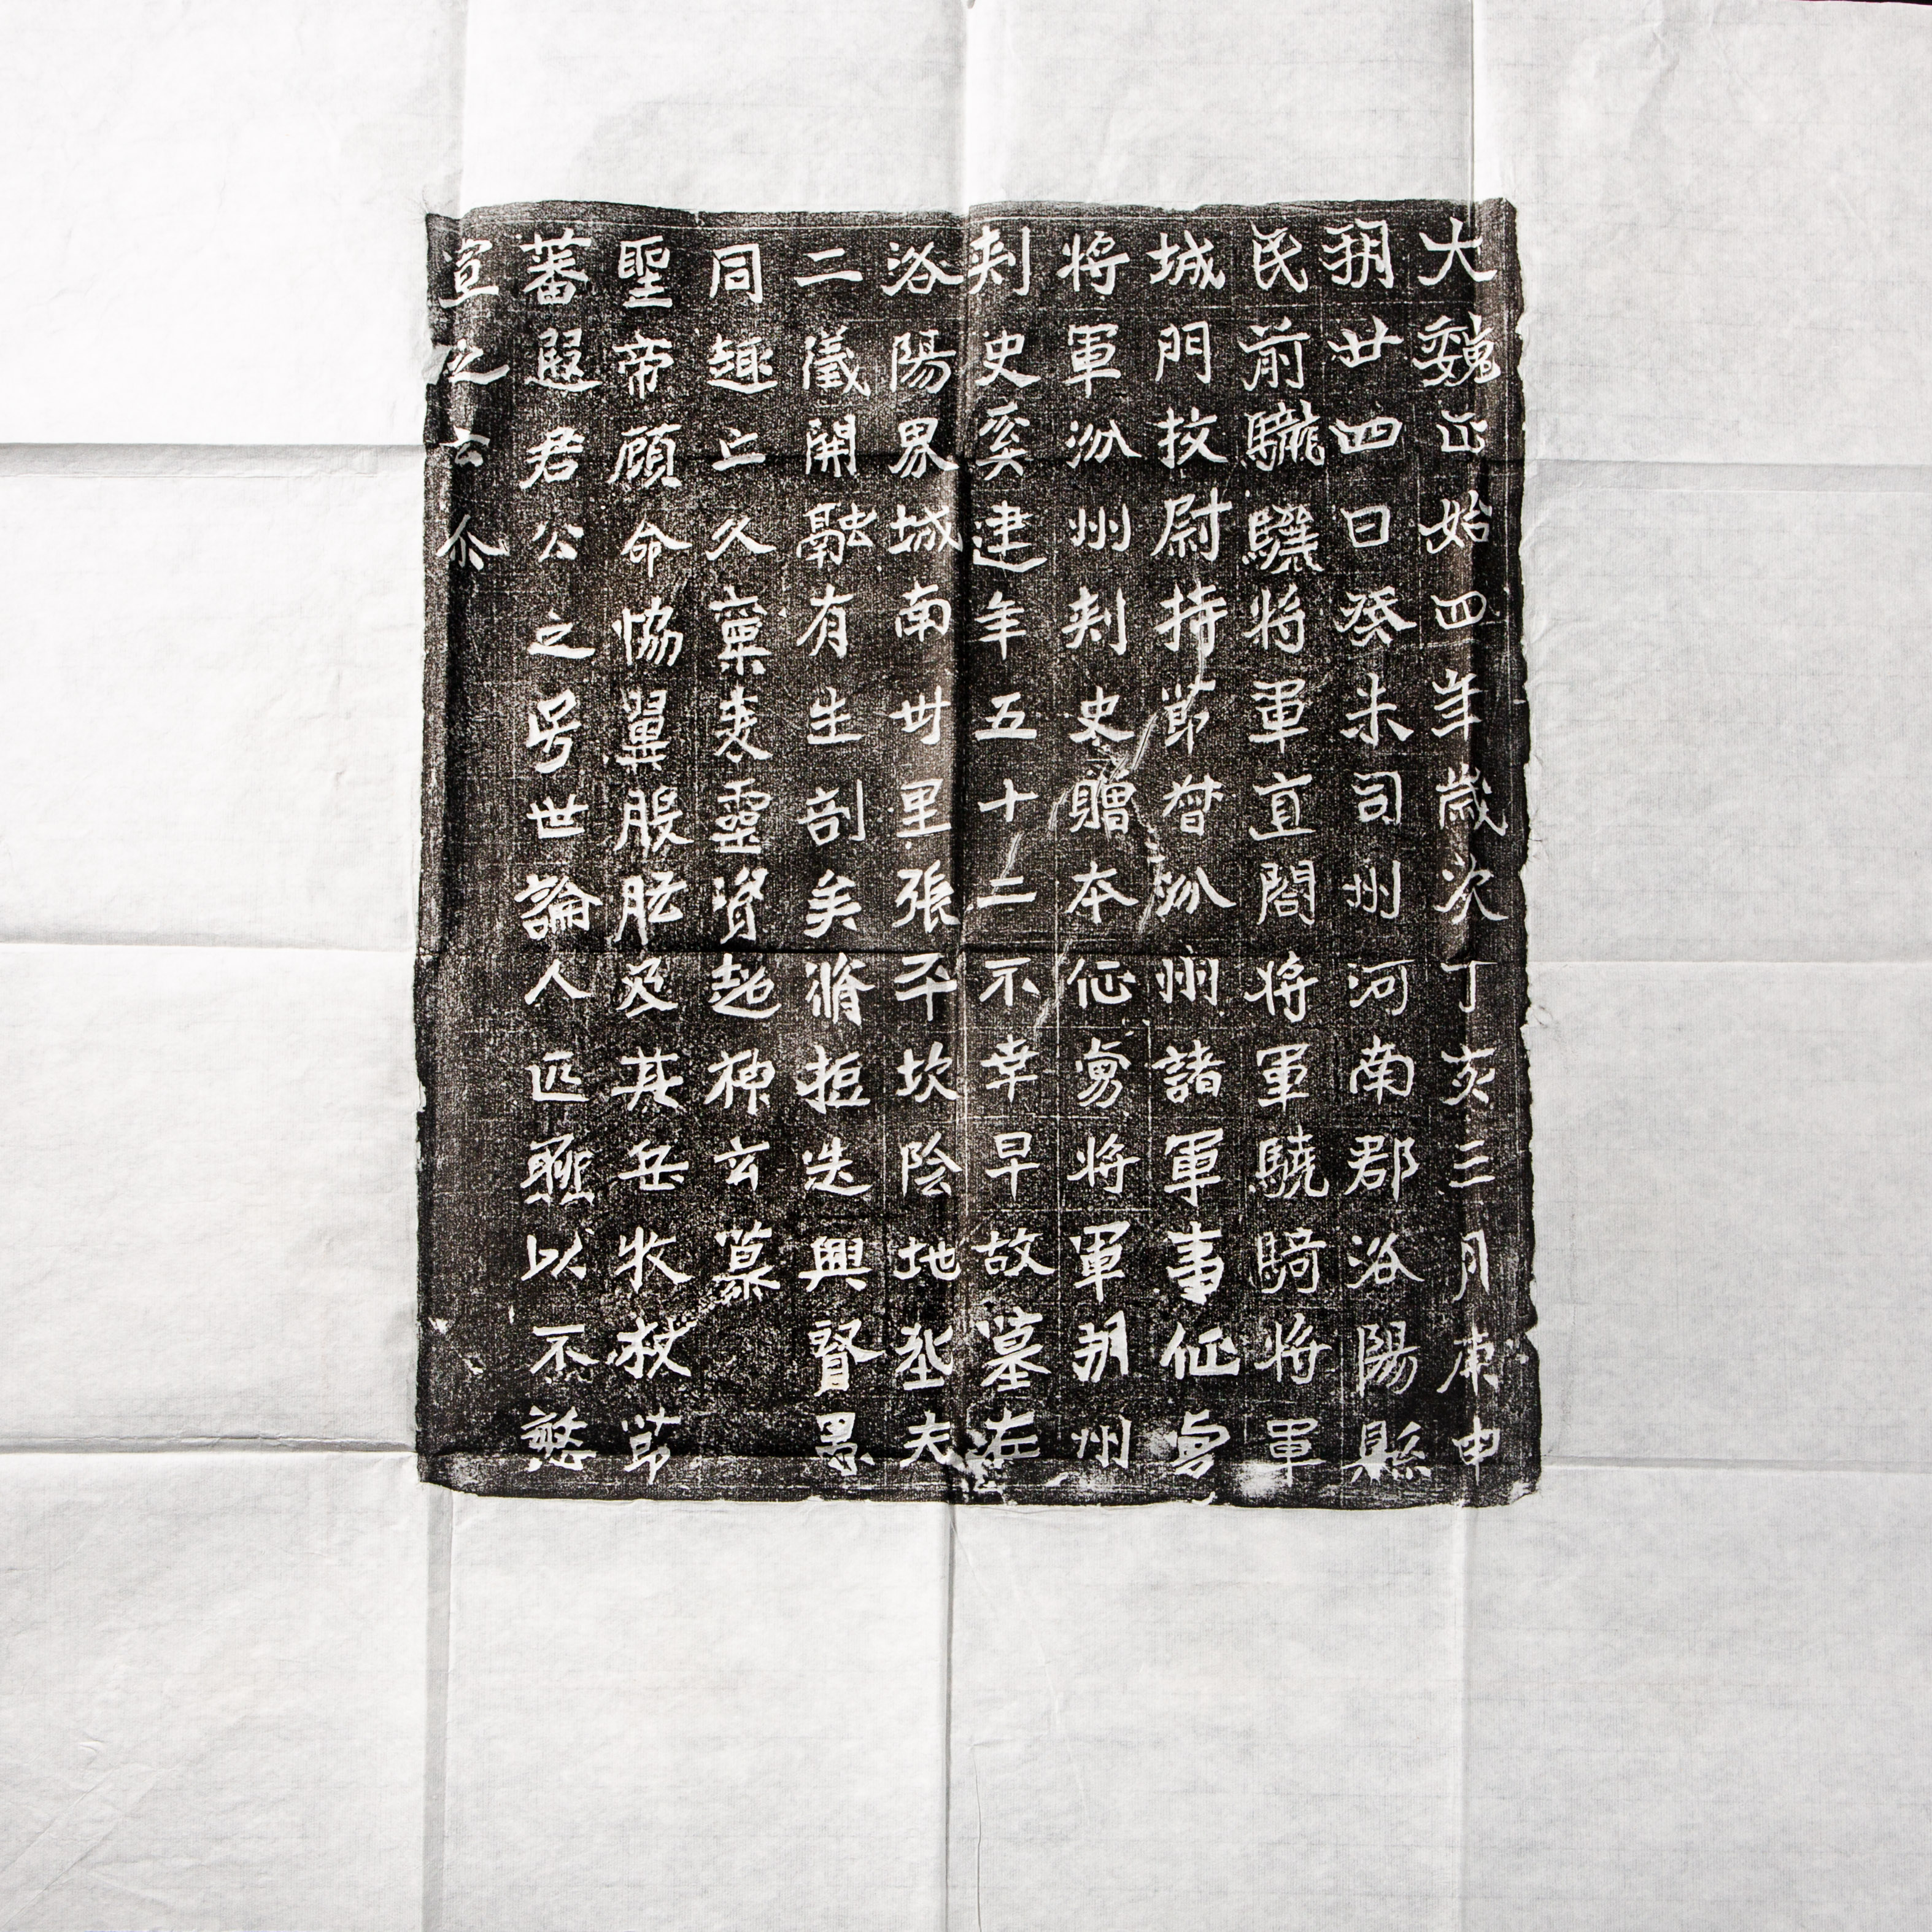 大魏正始四年歲次丁亥三月庚申
朔廿四日癸未司州河南郡洛陽縣
民前驪驤將軍直閤將軍驍騎將軍
城門校尉持節督汾州諸軍事征虜
將軍汾州刾史贈本征虜將軍朔州
刾史奚建年五十二不幸早故墓在
洛陽界城南卅里張平坎陰地𡊮夫
二儀開融有生剖矣脩拒迭興賢愚
同趣亡久稟麦靈資起神玄慕
聖帝顧命協翼股肱及其岳牧杖節
蕃遐君公之号世論人匹聊以不愁
宣之云尒